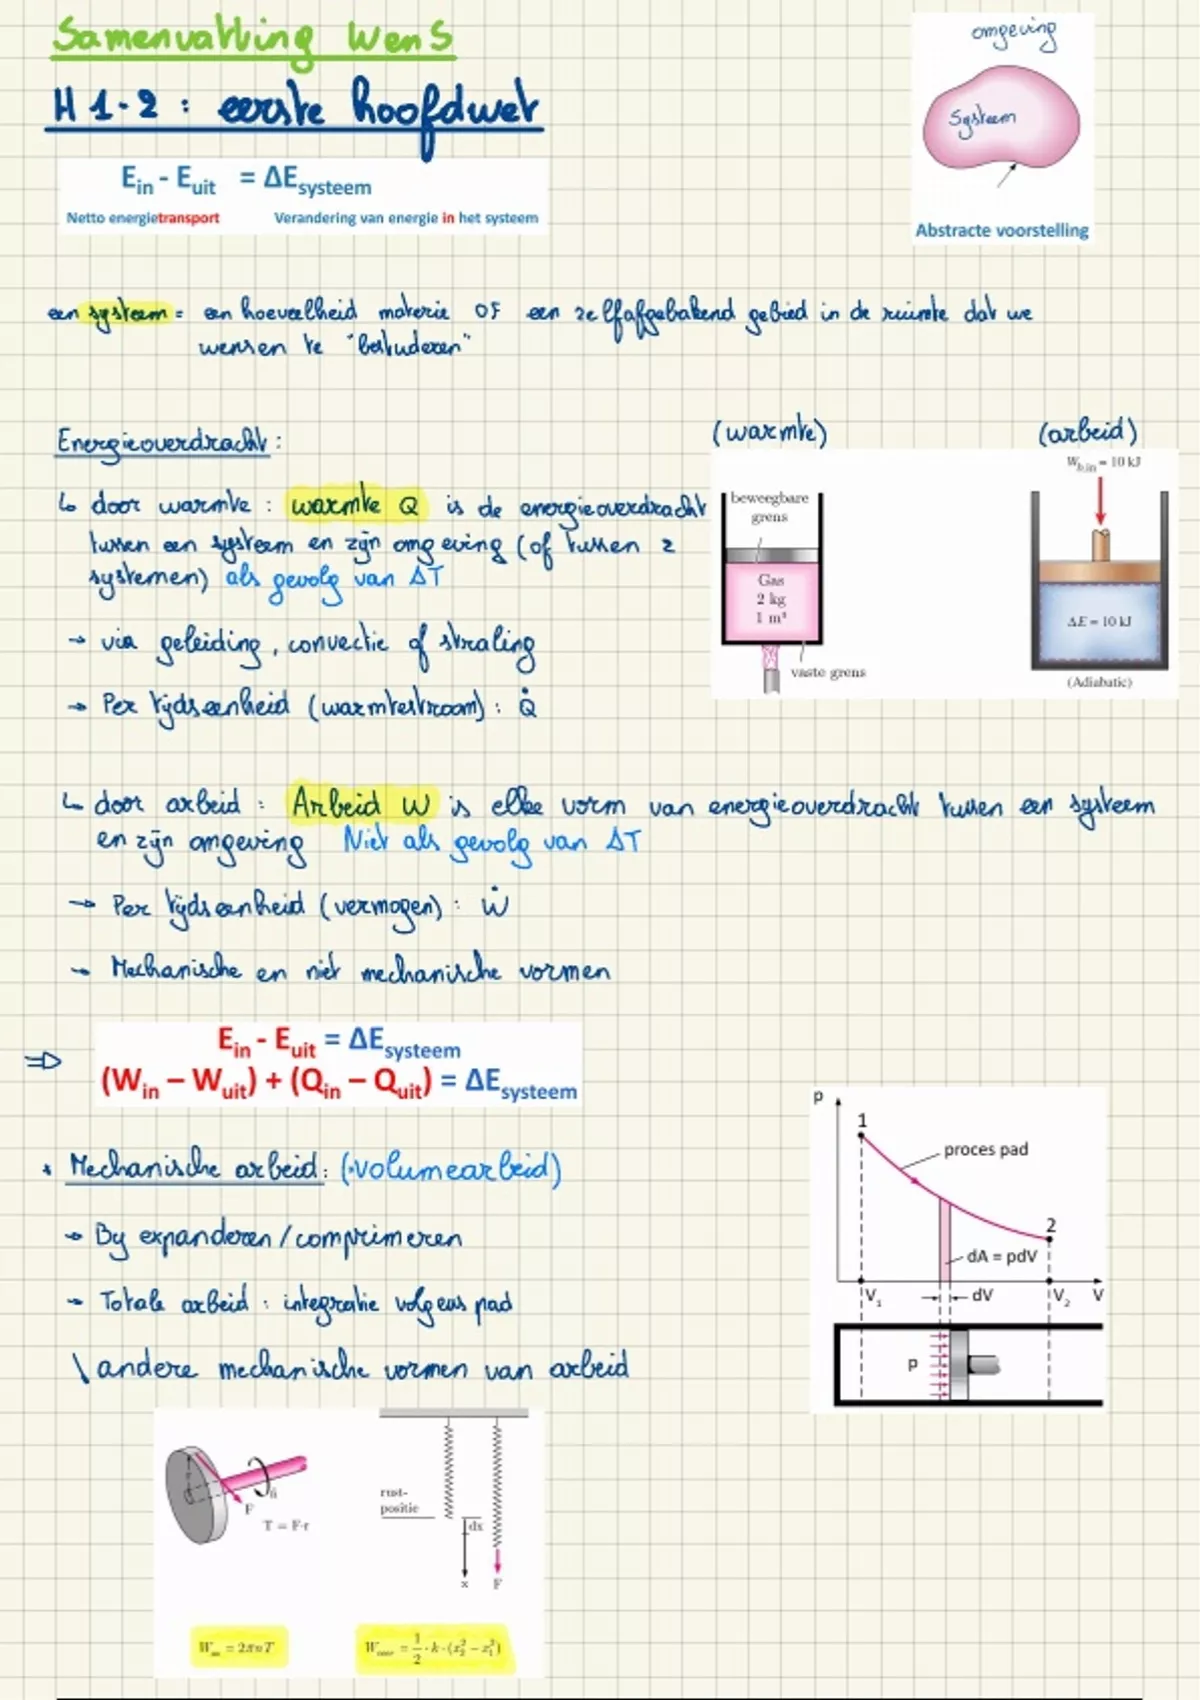 Samenvatting WenS
H1-2 : eerste hoofdwet
omgeving
Systeem
Abstracte voorstelling
E_in - E_uit = ΔE_systeem
Netto energietransport Verandering van energie in het systeem
een systeem = een hoeveelheid materie OF een zelfafgebakend gebied in de ruimte dat we
wensen te "bestuderen"
Energieoverdracht:
(warmte) (arbeid)
↳ door warmte : warmte Q is de energieoverdracht
tussen een systeem en zijn omgeving (of tussen 2
systemen) als gevolg van ΔT
→ via geleiding, convectie of straling
→ Per tijdseenheid (warmtestroom) : Q̇
beweegbare
grens
Gas
2 kg
1 m³
vaste grens
W_b,in = 10 kJ
ΔE = 10 kJ
(Adiabatic)
↳ door arbeid : Arbeid W is elke vorm van energieoverdracht tussen een systeem
en zijn omgeving Niet als gevolg van ΔT
→ Per tijdseenheid (vermogen) : Ẇ
→ Mechanische en niet mechanische vormen
⇒ E_in - E_uit = ΔE_systeem
(W_in – W_uit) + (Q_in – Q_uit) = ΔE_systeem
* Mechanische arbeid: (·volumearbeid)
→ By expanderen / comprimeren
→ Totale arbeid : integratie volgens pad
\ andere mechanische vormen van arbeid
p
1
proces pad
2
dA = pdV
V₁ dV V₂ V
p
F
ṅ
T = F·r
rust-
positie
dx
x F
= 2πnT
= 1/2 · k · (x₂² − x₁²)